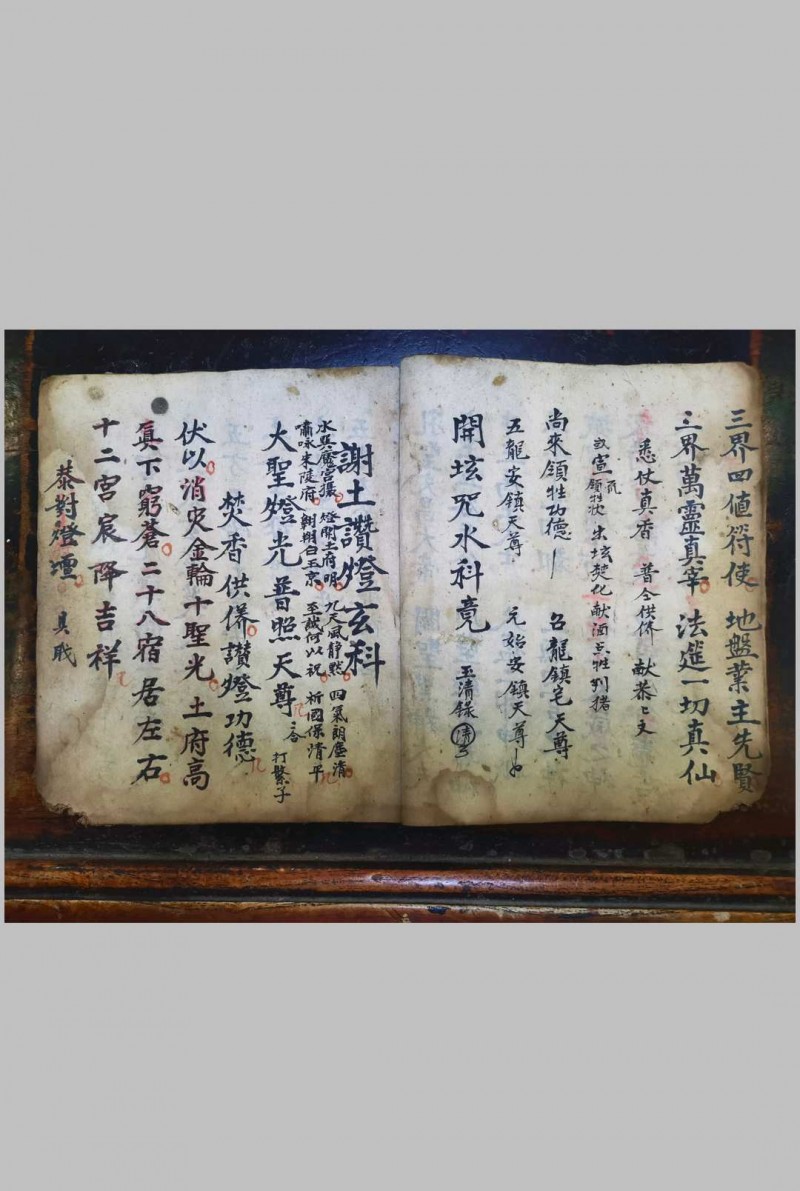 三界四值符使　地盤業主先賢
三界萬靈真宰　法筵一切真仙
悉仗真香　普仝供俻　献茶乚文
宣領牲 出垓焚化献酒点牲判猪
尚來領牲功德　召龍鎮宅天尊
五龍安鎮天尊　元始安鎮天尊
開垓咒水科竟　玉清錄
謝土讚燈玄科
燈開土府明　九天風静黙　四氣朗塵清
嘯咏朱陵府　翱翔白玉京　至誠何以祝　祈國保清平
大聖燈光普照天尊　打繁子
焚香供俻讃燈功德
伏以消災金輪十聖光　土府高
真下窮蒼　二十八宿居左右
十二宮宸降吉祥
恭對燈壇　具职